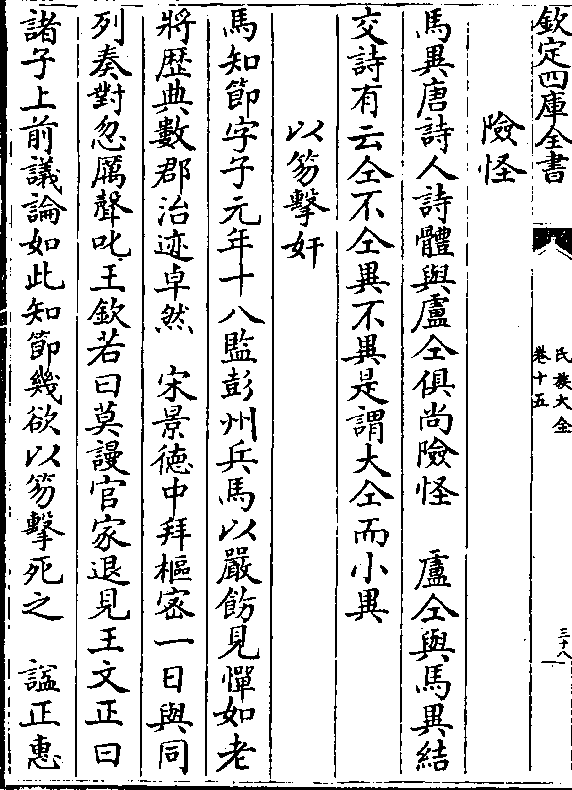 欽定四庫全書
氏族大全
卷十五
三十八
險怪
馬異唐詩人詩體與盧仝俱尚險怪　盧仝與馬異結
交詩有云仝不仝異不異是謂大仝而小異
以笏擊奸
馬知節字子元年十八監彭州兵馬以嚴飭見憚如老
將歴典數郡治迹卓然　宋景徳中拜樞宻一日與同
列奏對忽厲聲叱王欽若曰莫謾官家退見王文正曰
諸子上前議論如此知節幾欲以笏擊死之　諡正惠